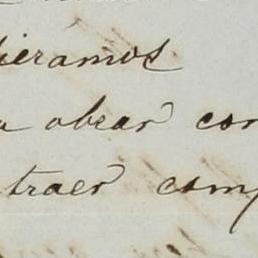 ieramos
a obrar con
traer comp